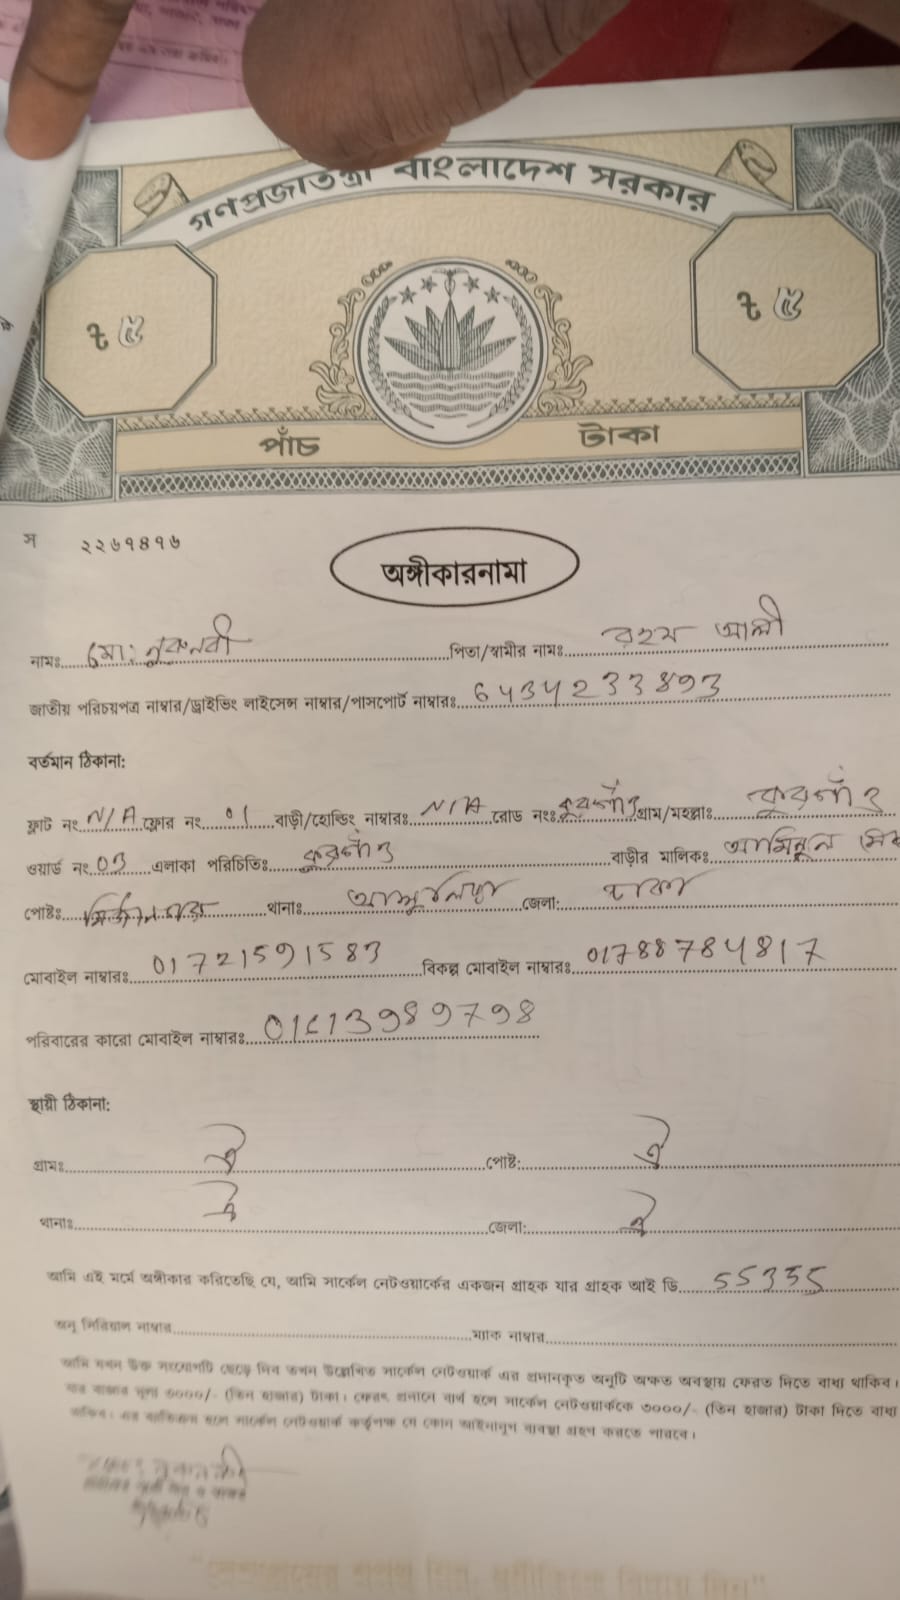 গণপ্রজাতন্ত্রী বাংলাদেশ সরকার
৳ ৫
৳ ৫
পাঁচ টাকা
স ২২৬৭৪৭৬
অঙ্গীকারনামা
নামঃ মো: নুরুনবী পিতা/স্বামীর নামঃ রহম আলী
জাতীয় পরিচয়পত্র নাম্বার/ড্রাইভিং লাইসেন্স নাম্বার/পাসপোর্ট নাম্বারঃ 6434233893
বর্তমান ঠিকানা:
ফ্লাট নং N/A ফ্লোর নং 01 বাড়ী/হোল্ডিং নাম্বারঃ N/A রোড নংঃ কুরগাঁও গ্রাম/মহল্লাঃ কুরগাঁও
ওয়ার্ড নং 03 এলাকা পরিচিতিঃ কুরগাঁও বাড়ীর মালিকঃ আমিনুল
পোষ্টঃ থানাঃ আশুলিয়া জেলা: ঢাকা
মোবাইল নাম্বারঃ 01721591583 বিকল্প মোবাইল নাম্বারঃ 01788784817
পরিবারের কারো মোবাইল নাম্বারঃ 01613989798
স্থায়ী ঠিকানা:
গ্রামঃ ঐ পোষ্ট: ঐ
থানাঃ ঐ জেলা: ঐ
আমি এই মর্মে অঙ্গীকার করিতেছি যে, আমি সার্কেল নেটওয়ার্কের একজন গ্রাহক যার গ্রাহক আই ডি 55355
অনু সিরিয়াল নাম্বার ম্যাক নাম্বার
আমি যখন উক্ত সংযোগটি ছেড়ে দিব তখন উল্লেখিত সার্কেল নেটওয়ার্ক এর প্রদানকৃত অনুটি অক্ষত অবস্থায় ফেরত দিতে বাধ্য থাকিব।
যার বাজার মূল্য ৩০০০/- (তিন হাজার) টাকা। ফেরৎ প্রদানে ব্যর্থ হলে সার্কেল নেটওয়ার্ককে ৩০০০/- (তিন হাজার) টাকা দিতে বাধ্য
থাকিব। এর ব্যতিক্রম হলে সার্কেল নেটওয়ার্ক কর্তৃপক্ষ যে কোন আইনানুগ ব্যবস্থা গ্রহণ করতে পারবে।